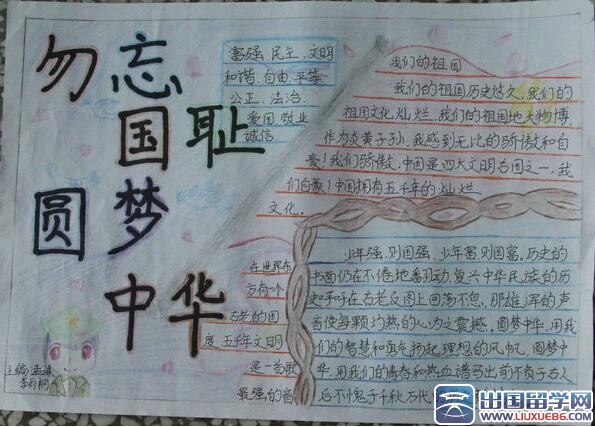 勿忘
国耻
圆梦
中华
富强、民主、文明
和谐、自由、平等
公正、法治、
爱国、敬业
诚信.
我们的祖国
我们的祖国历史悠久,我们的
祖国文化灿烂,我们的祖国地大物博,
作为炎黄子孙,我感到无比的骄傲和自
豪!我们骄傲,中国是四大文明古国之一,我
们自豪!中国拥有五千年的灿烂
文化。
在世界东
方有一个
古老的国
度五千年文明
是一首歌
最强的音
少年强,则国强,少年富则国富,历史的
书面仍在不倦地翻动,复兴中华民族的历
史呼吁在古老反图上回荡不息,那雄浑的声
音使每颗灼热的心为之震撼,圆梦中华,用我
们的智慧和勇气扬起理想的风帆,圆梦中
华,用我们的青春和热血谱写出前不负古人
后不愧子千秋万代
主编:孟
李雨桐
出国留学网
WWW.LIUXUE86.COM